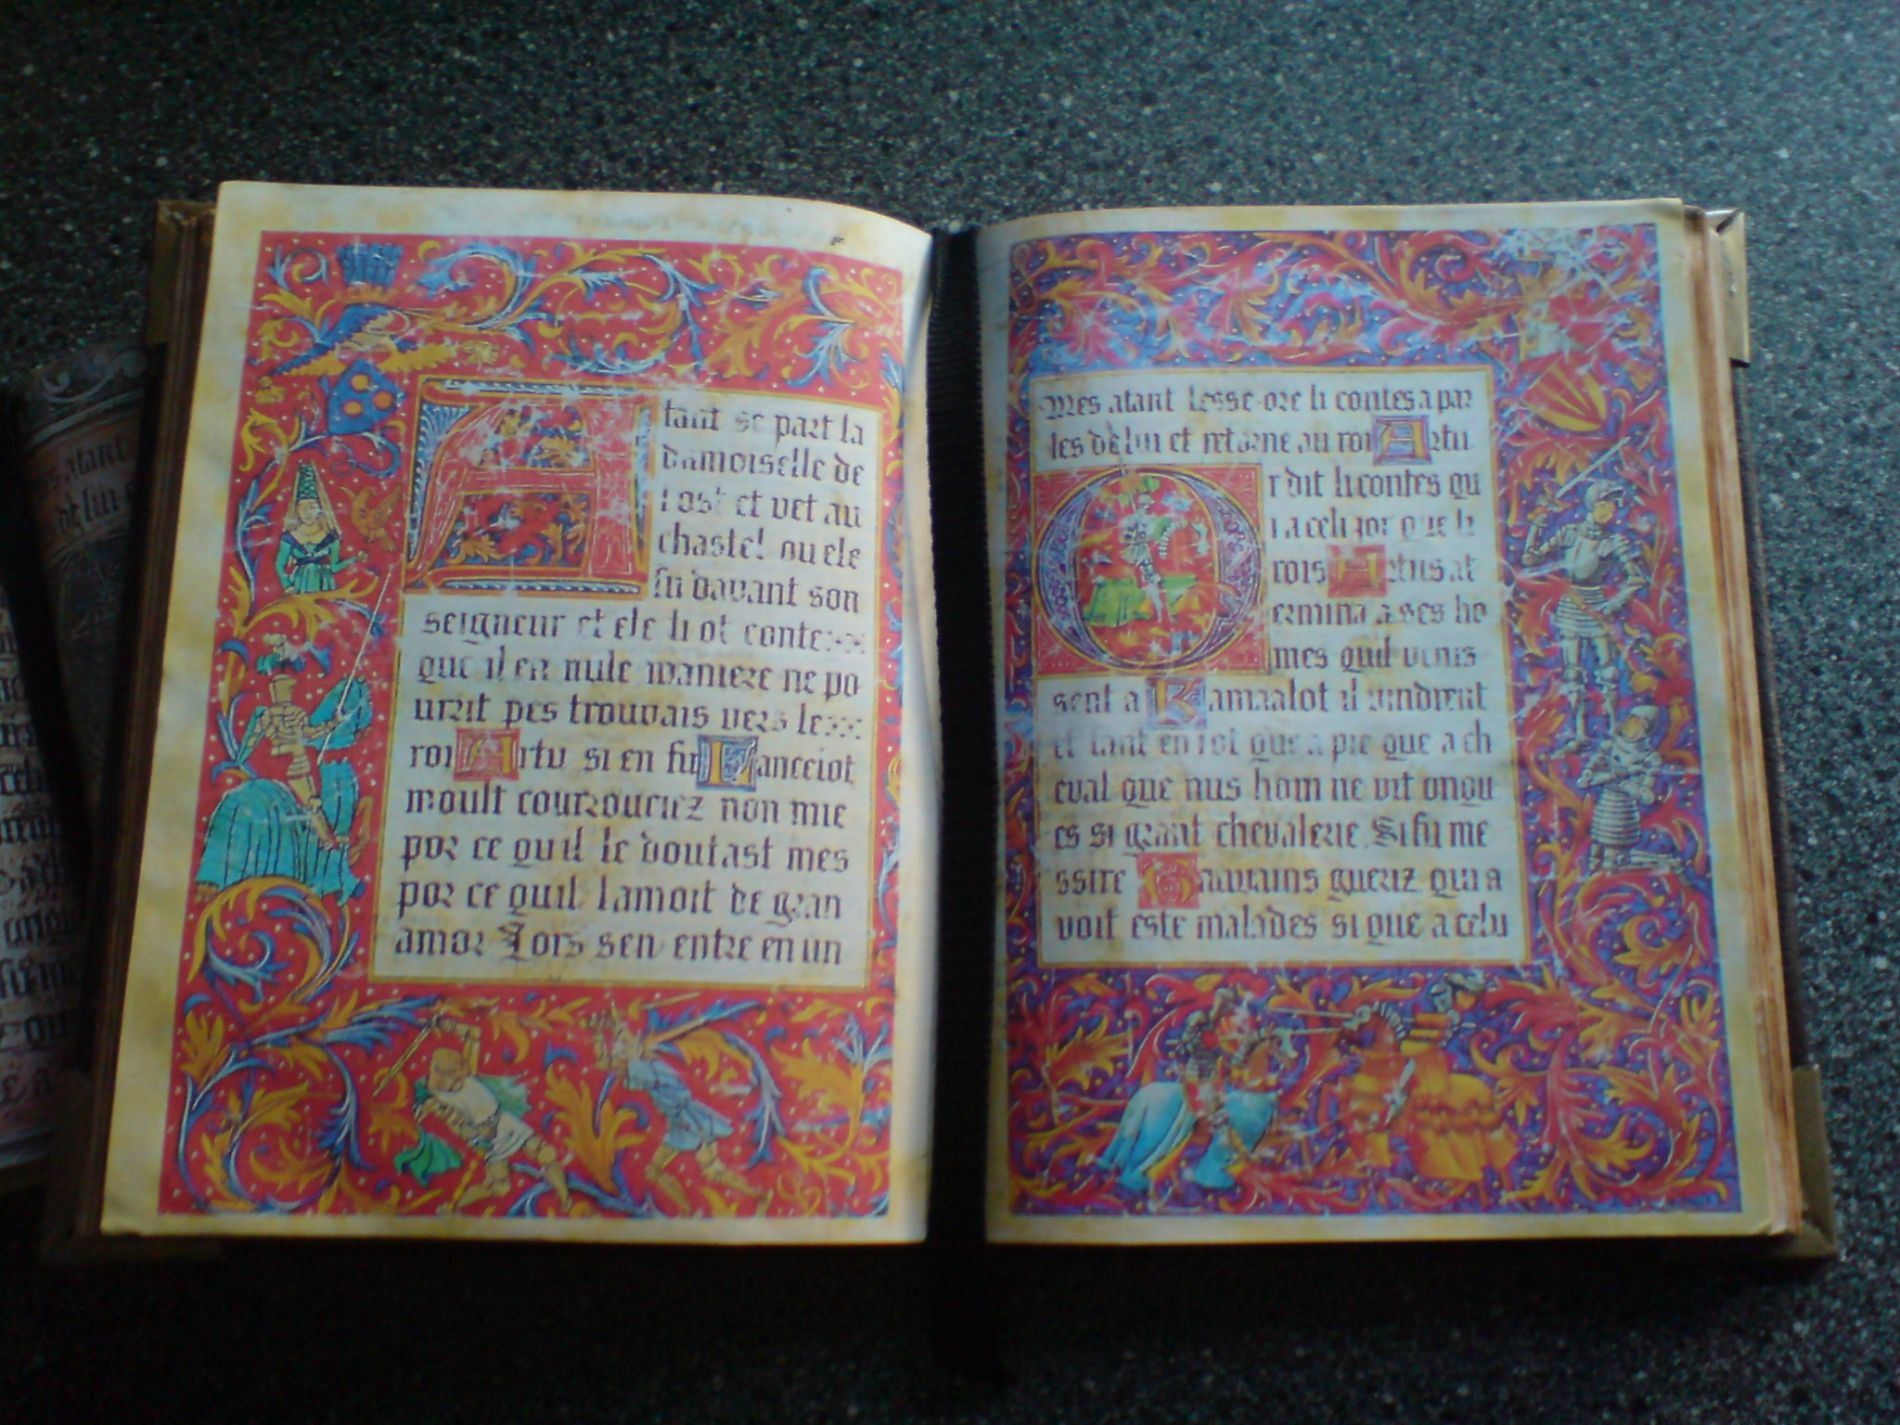 Atant se part la
damoiselle de
lost et vet au
chastel ou ele
fu davant son
seigneur et ele li ot conte
que il en nule maniere ne po
urrit pes trouvais vers le
roi Artu si en fu Lancelot
moult courrouciez non mie
por ce quil le doutast mes
por ce quil lamoit de gran
amor Lors sen entre en un
Mes atant lesse ore li contes a par
les de lui et retorne au roi Artu
Or dit li contes qu
i a celi jor que li
rois Artus at
ermina a ses ho
mes quil venis
sent a Kamaalot il vindrent
et tant en i ot que a pie que a ch
eval que nus hom ne vit onqu
es si grant chevalerie Si fu me
ssire Gauvains gueriz qui a
voit este malades si que a celu